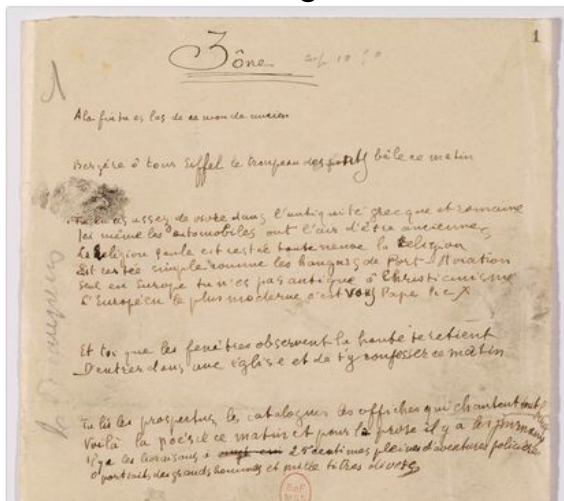 Zône
1
A la fin tu es las de ce monde ancien
Bergère ô tour Eiffel le troupeau des ponts bêle ce matin
Tu en as assez de vivre dans l'antiquité grecque et romaine
Ici même les automobiles ont l'air d'être anciennes
La religion seule est restée toute neuve la religion
Est restée simple comme les hangars de Port-Aviation
Seul en Europe tu n'es pas antique ô Christianisme
L'Européen le plus moderne c'est vous Pape Pie X
Et toi que les fenêtres observent la honte te retient
D'entrer dans une église et de t'y confesser ce matin
Tu lis les prospectus les catalogues les affiches qui chantent tout haut
Voilà la poésie ce matin et pour la prose il y a les journaux
Il y a les livraisons à 25 centimes pleines d'aventures policières
portraits des grands hommes et mille titres divers